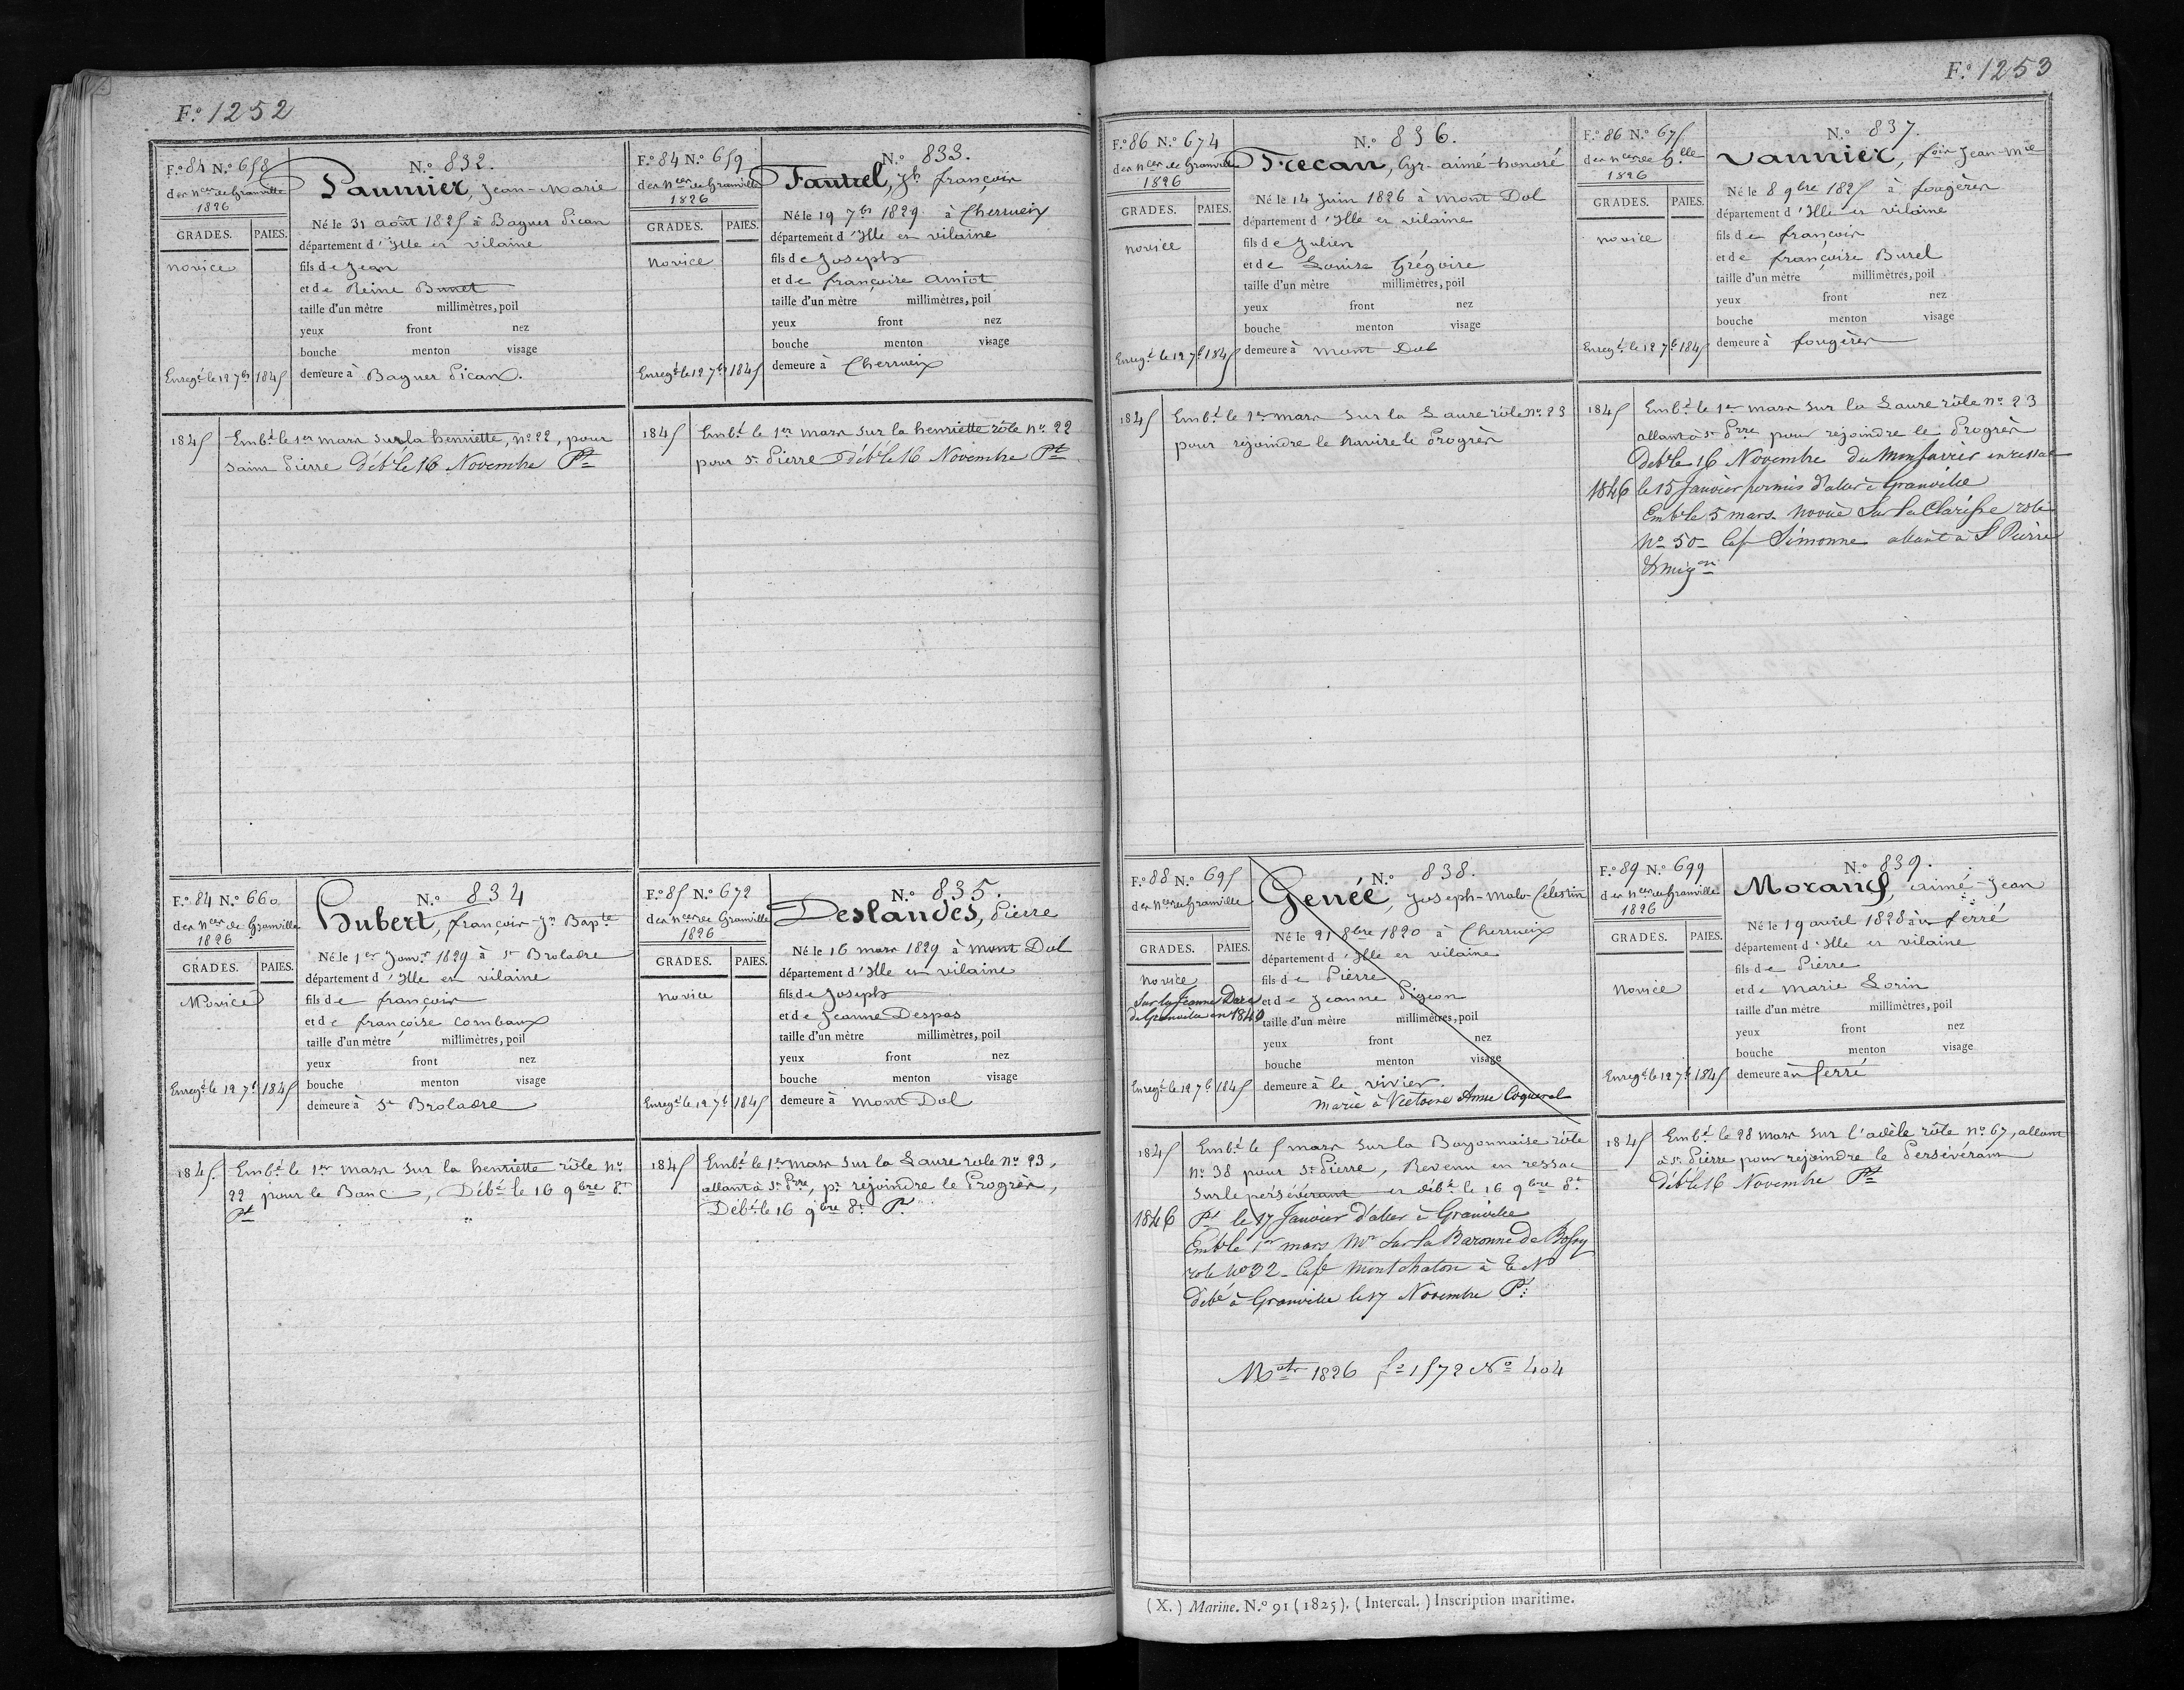 F.o 1252
F.o 84 N.o 658
des nces de Granville
1826
GRADES. PAIES.
novice
Enreg.é le 12 7.b 1845
N.o 832.
Paumier, Jean-Marie
Né le 31 août 1825 à Baguer Pican
département d'Ille et vilaine
fils de Jean
et de Reine Bunet
taille d'un mètre millimètres, poil
yeux front nez
bouche menton visage
demeure à Baguer Pican.
1845 Emb.é le 1er mars sur la henriette, n.o 22, pour
saint Pierre Déb.é le 16 Novembre Pt
F.o 84 N.o 659
des nces de Granville
1826
GRADES. PAIES.
novice
Enreg.é le 12 7.b 1845
N.o 833.
Fautrel, Jh françois
Né le 19 7.bre 1829 à Cherrueix
département d'Ille et vilaine
fils de Joseph
et de françoise amiot
taille d'un mètre millimètres, poil
yeux front nez
bouche menton visage
demeure à Cherrueix
1845 Emb.é le 1er mars sur la henriette rôle n.o 22
pour St Pierre Déb.é le 16 Novembre Pt
F.o 84 N.o 660
des nces de Granville
1826
GRADES. PAIES.
Novice
Enreg.é le 12 7.b 1845
N.o 834
Hubert, françois-Jn Bapte
Né le 1er Janv.r 1829 à St Broladre
département d'Ille et vilaine
fils de françois
et de françoise combaux
taille d'un mètre millimètres, poil
yeux front nez
bouche menton visage
demeure à St Broladre
1845. Emb.é le 1er mars sur la henriette rôle n.o
22 pour le Banc, Déb.é le 16 9bre 8.t
Pt
F.o 85 N.o 672
des nces de Granville
1826
GRADES. PAIES.
novice
Enreg.é le 12 7.b 1845
N.o 835.
Deslandes, Pierre
Né le 16 mars 1829 à mont Dol
département d'Ille et vilaine
fils de Joseph
et de Jeanne Despas
taille d'un mètre millimètres, poil
yeux front nez
bouche menton visage
demeure à mont Dol
1845 Emb.é le 1er mars sur la Laure role n.o 23,
allant à St Prre, pr rejoindre le Progrès,
Déb.é le 16 9bre 8.t P.t
F.o 1253
F.o 86 N.o 674
des nces de Granville
1826
GRADES. PAIES.
novice
Enreg.é le 12 7.b 1845
N.o 836.
Trecan, Cyr-aimé-honoré
Né le 14 Juin 1826 à mont Dol
département d'Ille et vilaine
fils de Julien
et de Louise Grégoire
taille d'un mètre millimètres, poil
yeux front nez
bouche menton visage
demeure à mont Dol
1845 Emb.é le 1er mars sur la Laure rôle n.o 23
pour rejoindre le navire le Progrès
F.o 86 N.o 675
des nces de Glle
1826
GRADES. PAIES.
novice
Enreg.é le 12 7.b 1845
N.o 837.
Vannier, fois Jean-Mie
Né le 8 9bre 1825 à fougères
département d'Ille et vilaine
fils de françois
et de françoise Burel
taille d'un mètre millimètres, poil
yeux front nez
bouche menton visage
demeure à fougères
1845 Emb.é le 1er mars sur la Laure rôle n.o 23
allant à St Prre pour rejoindre le Progrès
Déb.é le 16 Novembre du en ressac
1846 le 15 Janvier permis d'aller à Granville
Emb.é le 5 mars novice sur la Clarisse role
No 50 Cap Simonne allant à St Pierre
& miqon
F.o 88 N.o 695
des nces de Granville
GRADES. PAIES.
novice
Sur la Jeanne Darc
de Granville en 1840
Enreg.é le 12 7.b 1845
N.o 838.
Genée, Joseph-malo-Célestin
Né le 21 8bre 1820 à Cherrueix
département d'Ille et vilaine
fils de Pierre
et de Jeanne Pigeon
taille d'un mètre millimètres, poil
yeux front nez
bouche menton visage
demeure à le vivier.
marié à Victoire Anne Coquerel
1845 Emb.é le 5 mars sur la Bayonnaise rôle
n.o 38 pour St Pierre, Revenu en ressac
sur le persévérant et déb.é le 16 9bre 8.t
1846 Pt le 17 Janvier d'aller à Granville
Emb.é le 1er mars sur la Baronne de
role No 32 Cap montchaton à T N
Débé à Granville le 17 Novembre Pt
Matr 1826 fo 1572 No 404
F.o 89 N.o 699
des nces de Granville
1826
GRADES. PAIES.
novice
Enreg.é le 12 7.b 1845
N.o 839.
Morand, aimé-Jean
Né le 19 avril 1828 au ferré
département d'Ille et vilaine
fils de Pierre
et de marie Lorin
taille d'un mètre millimètres, poil
yeux front nez
bouche menton visage
demeure au ferré
1845 Emb.é le 28 mars sur l'adèle rôle n.o 67, allant
à St Pierre pour rejoindre le Persévérant
Déb.é le 16 Novembre Pt
(X.) Marine. N.o 91 (1825). (Intercal.) Inscription maritime.